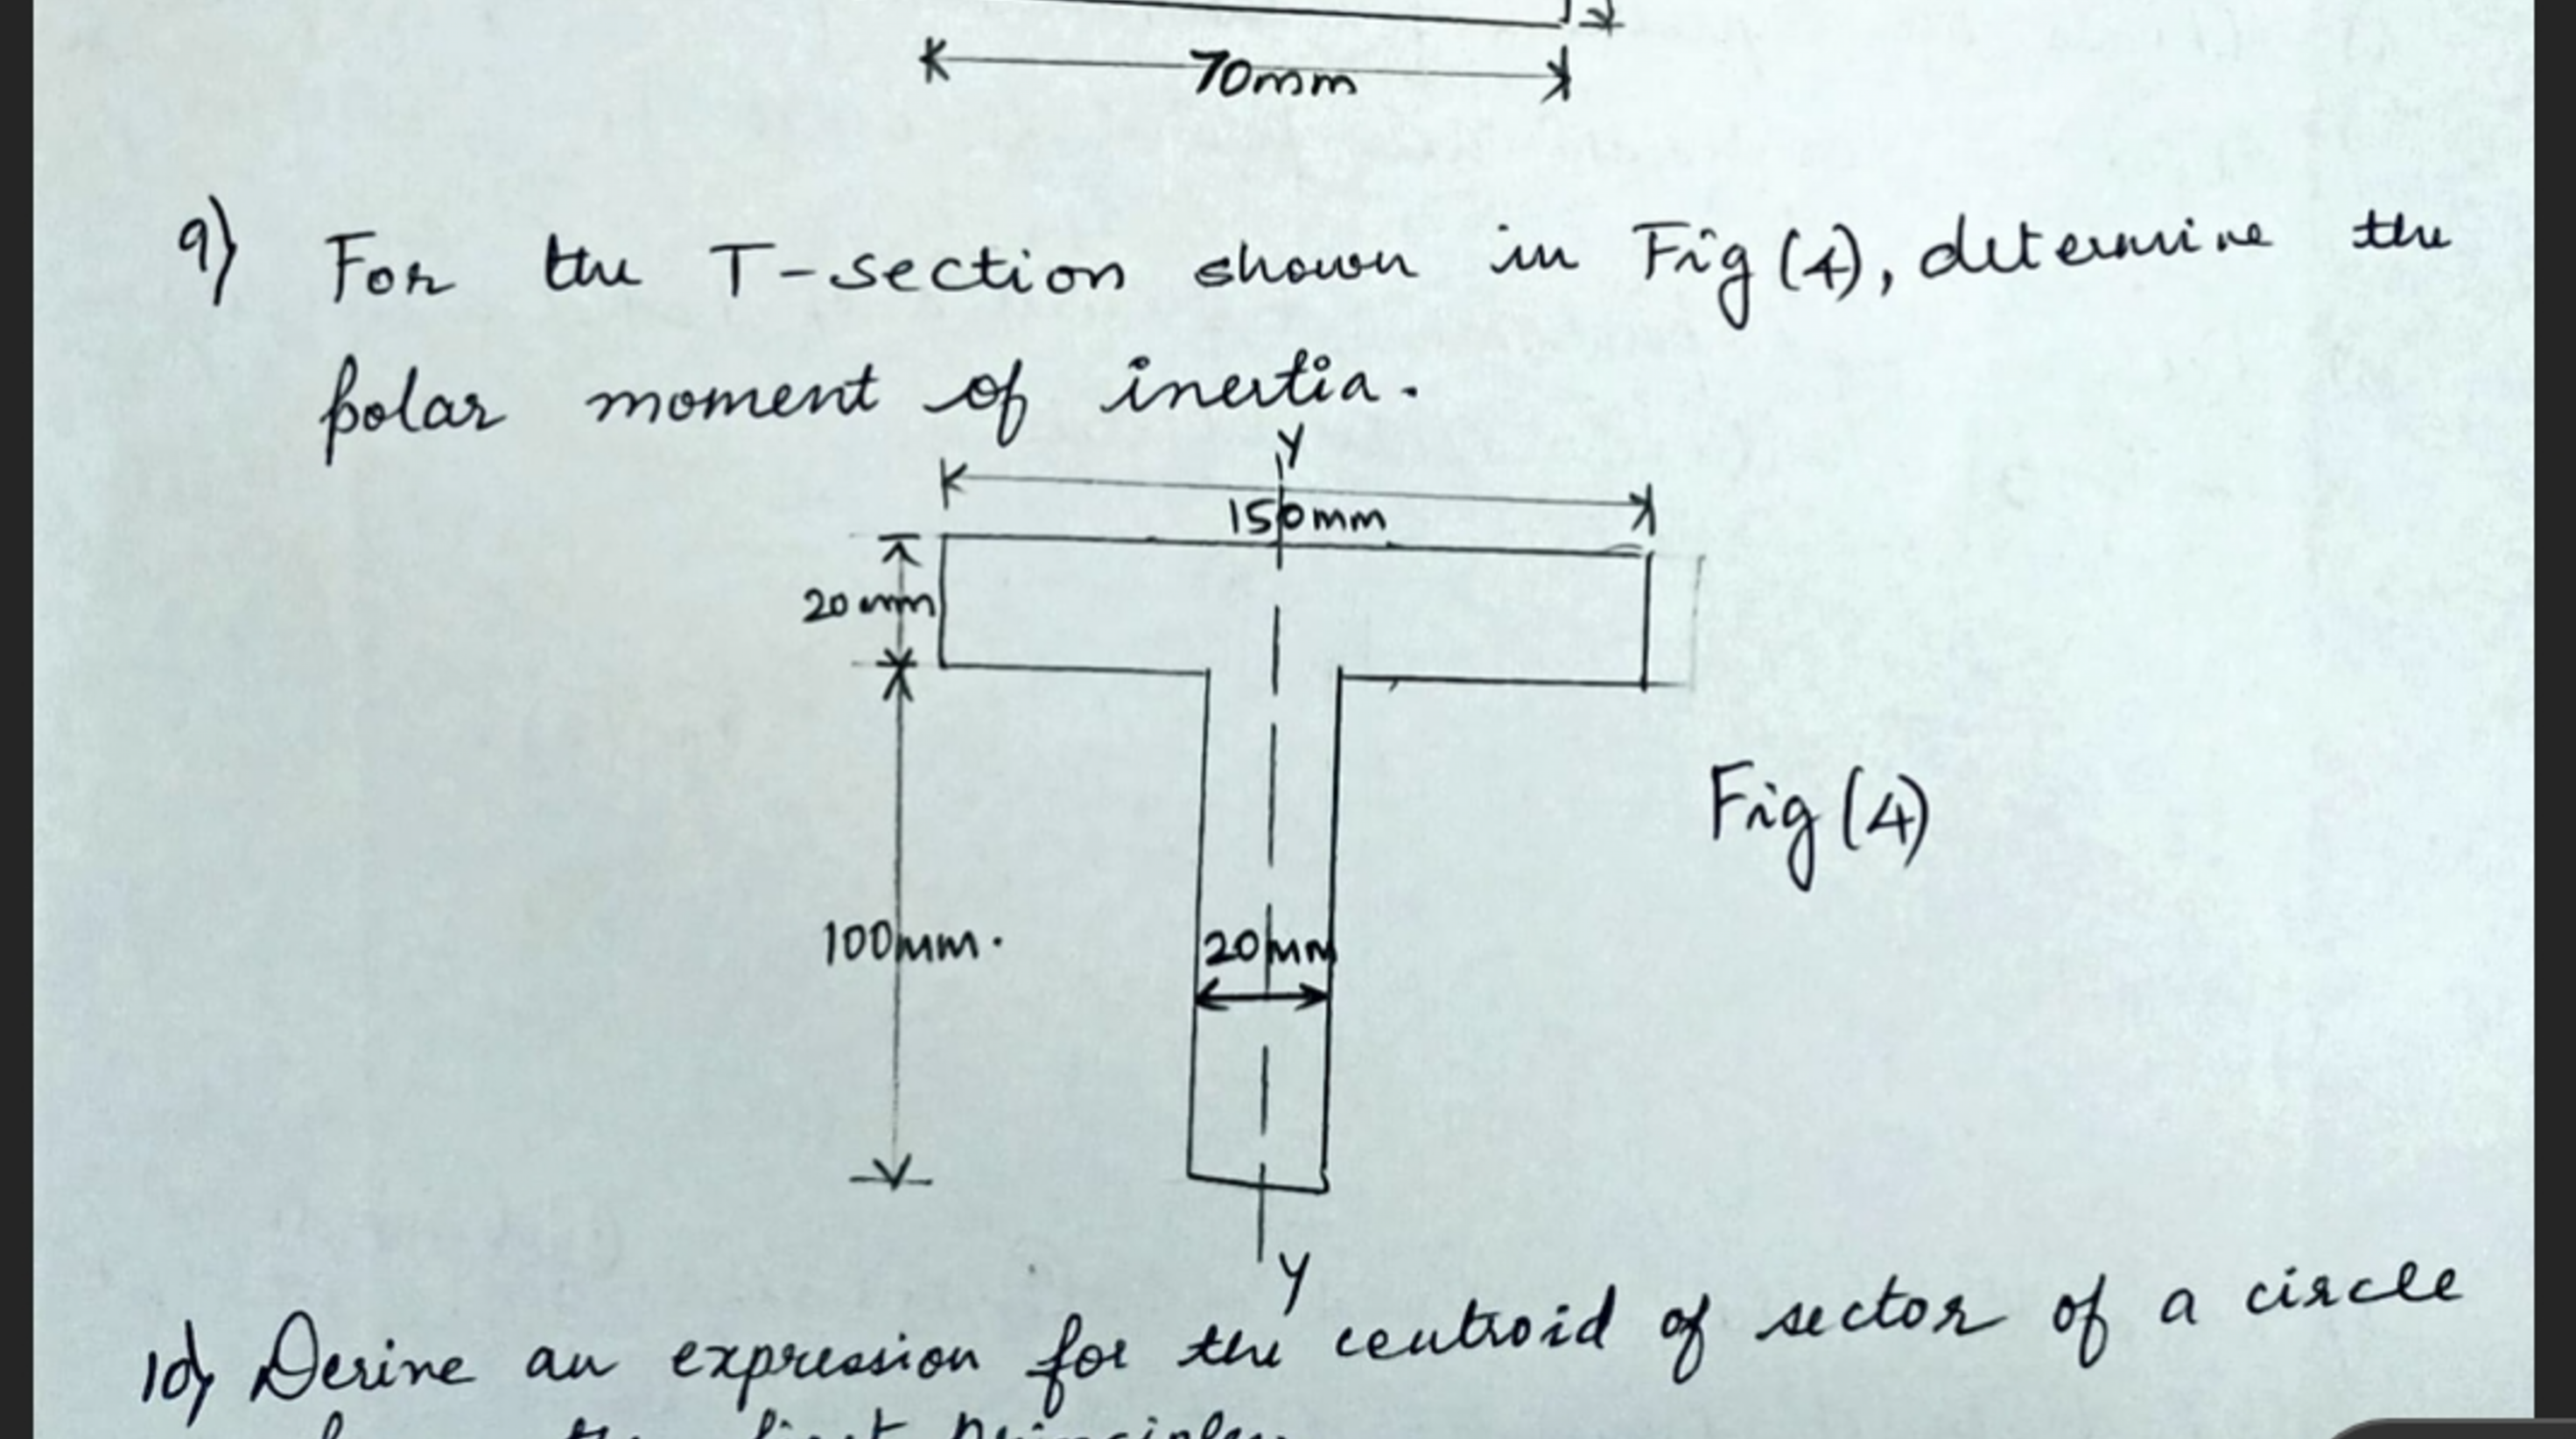 70mm
9) For the T-section shown in Fig (4), determine the
polar moment of inertia.
Y
150mm
20mm
Fig (4)
100mm.
20mm
Y
10) Derive an expression for the centroid of sector of a circle
the first principles